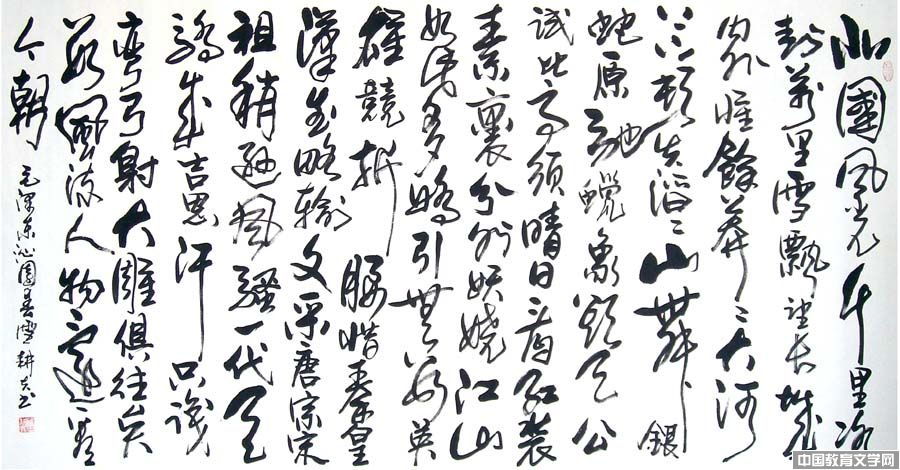 北國風光千里冰
封萬里雪飄望長城
内外惟餘莽〻大河
上下頓失滔〻山舞銀
蛇原馳蠟象欲與天公
試比高須晴日看紅裝
素裹分外妖嬈江山
如此多嬌引無數英
雄競折腰惜秦皇
漢武略輸文采唐宗宋
祖稍遜風騷一代天
驕成吉思汗只識
彎弓射大雕俱往矣
數風流人物還看
今朝
毛澤東沁園春雪耕
中国教育文学网